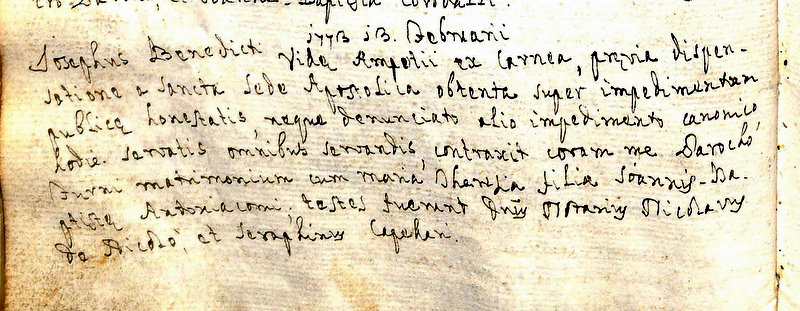 1773 13. Februarii
Josephus Benedicti Vide Ampelii ex Carnea, previa dispen-
satione a sancta sede Apostolica obtenta super impedimentum
publicę honestatis, neque denunciato alio impedimento canonico,
hodie servatis omnibus servandis, contraxit coram me Parocho
Durni matrimonium cum Maria Theresia filia Joannis-Ba-
ptistę Antoniacomi; testes fuerunt Dnūs Notarius Nicolaus
de Nicolò, et Seraphinus Capellari.